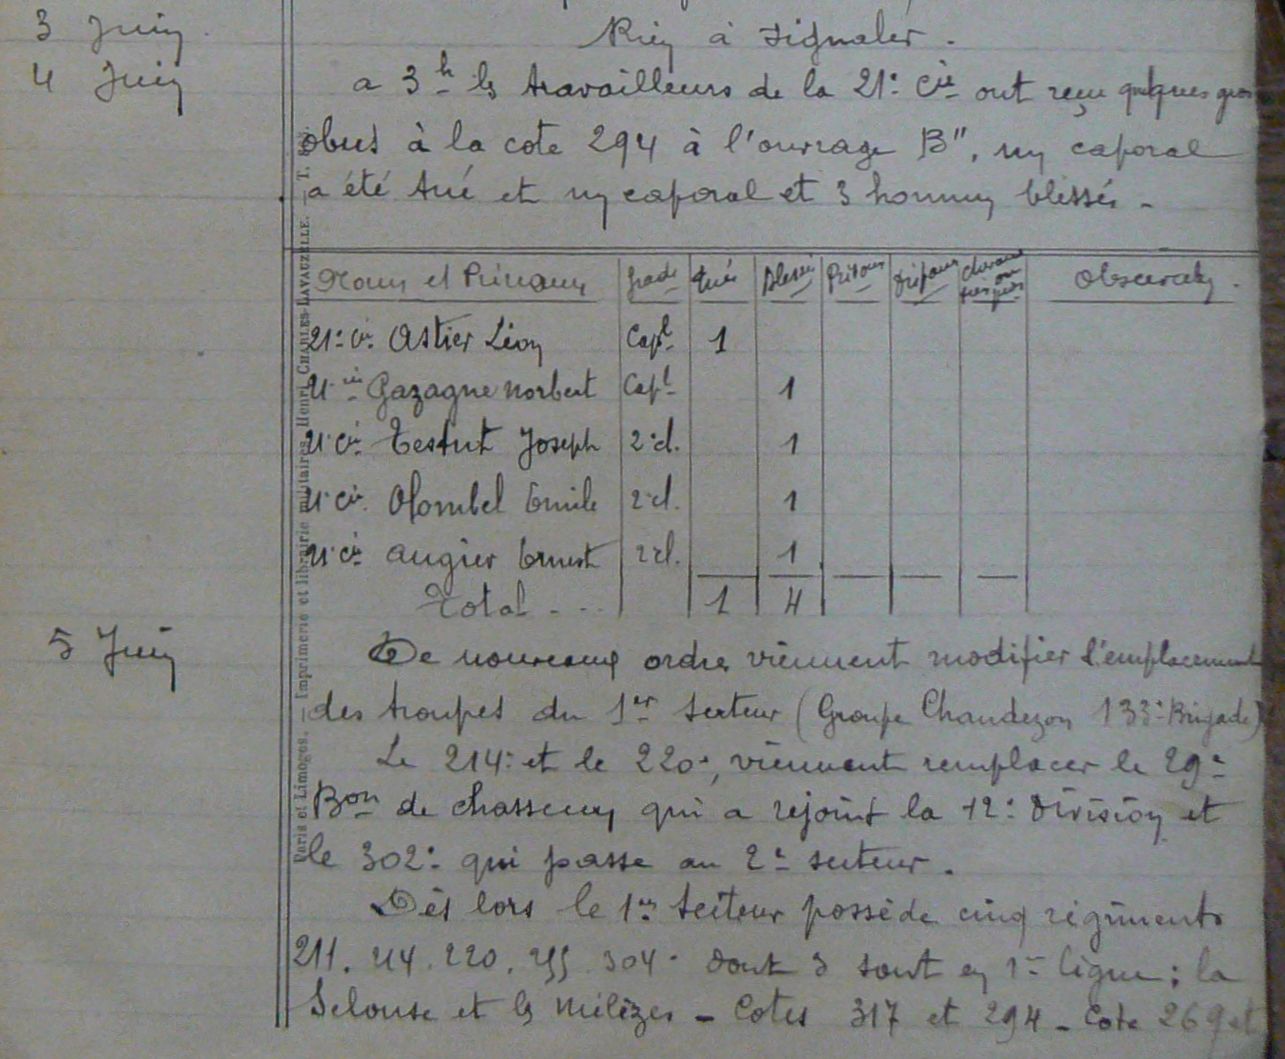 3 Juin
Rien à signaler.
4 Juin
a 3h les travailleurs de la 21e Cie ont reçu quelques gros
obus à la cote 294 à l'ouvrage B", un caporal
a été tué et un caporal et 3 hommes blessés -
Noms et Prénoms grade tués Blessés Prisons Dispars chevaux Observat
21e Cie Astier Léon Capl 1
21e Cie Gazagne Norbert Capl 1
21e Cie Testut Joseph 2e cl. 1
21e Cie Olombel Emile 2e cl. 1
21e Cie Augier Ernest 2e cl. 1
Total - . . . 1 4
5 Juin
De nouveaux ordres viennent modifier l'emplacement
des troupes du 1er Secteur (Groupe Chandezon 133e Brigade)
Le 214e et le 220e, viennent remplacer le 29e
Bon de chasseurs qui a rejoint la 12e Division et
le 302e qui passe au 2e secteur.
Dès lors le 1er Secteur possède cinq régiments
211. 214. 220. 255. 304e dont 3 sont en 1re ligne ; la
Selouse et les Mélèzes - Cotes 317 et 294 - Cote 269 et
Paris et Limoges. — Imprimerie et librairie militaires Henri CHARLES-LAVAUZELLE. — T.